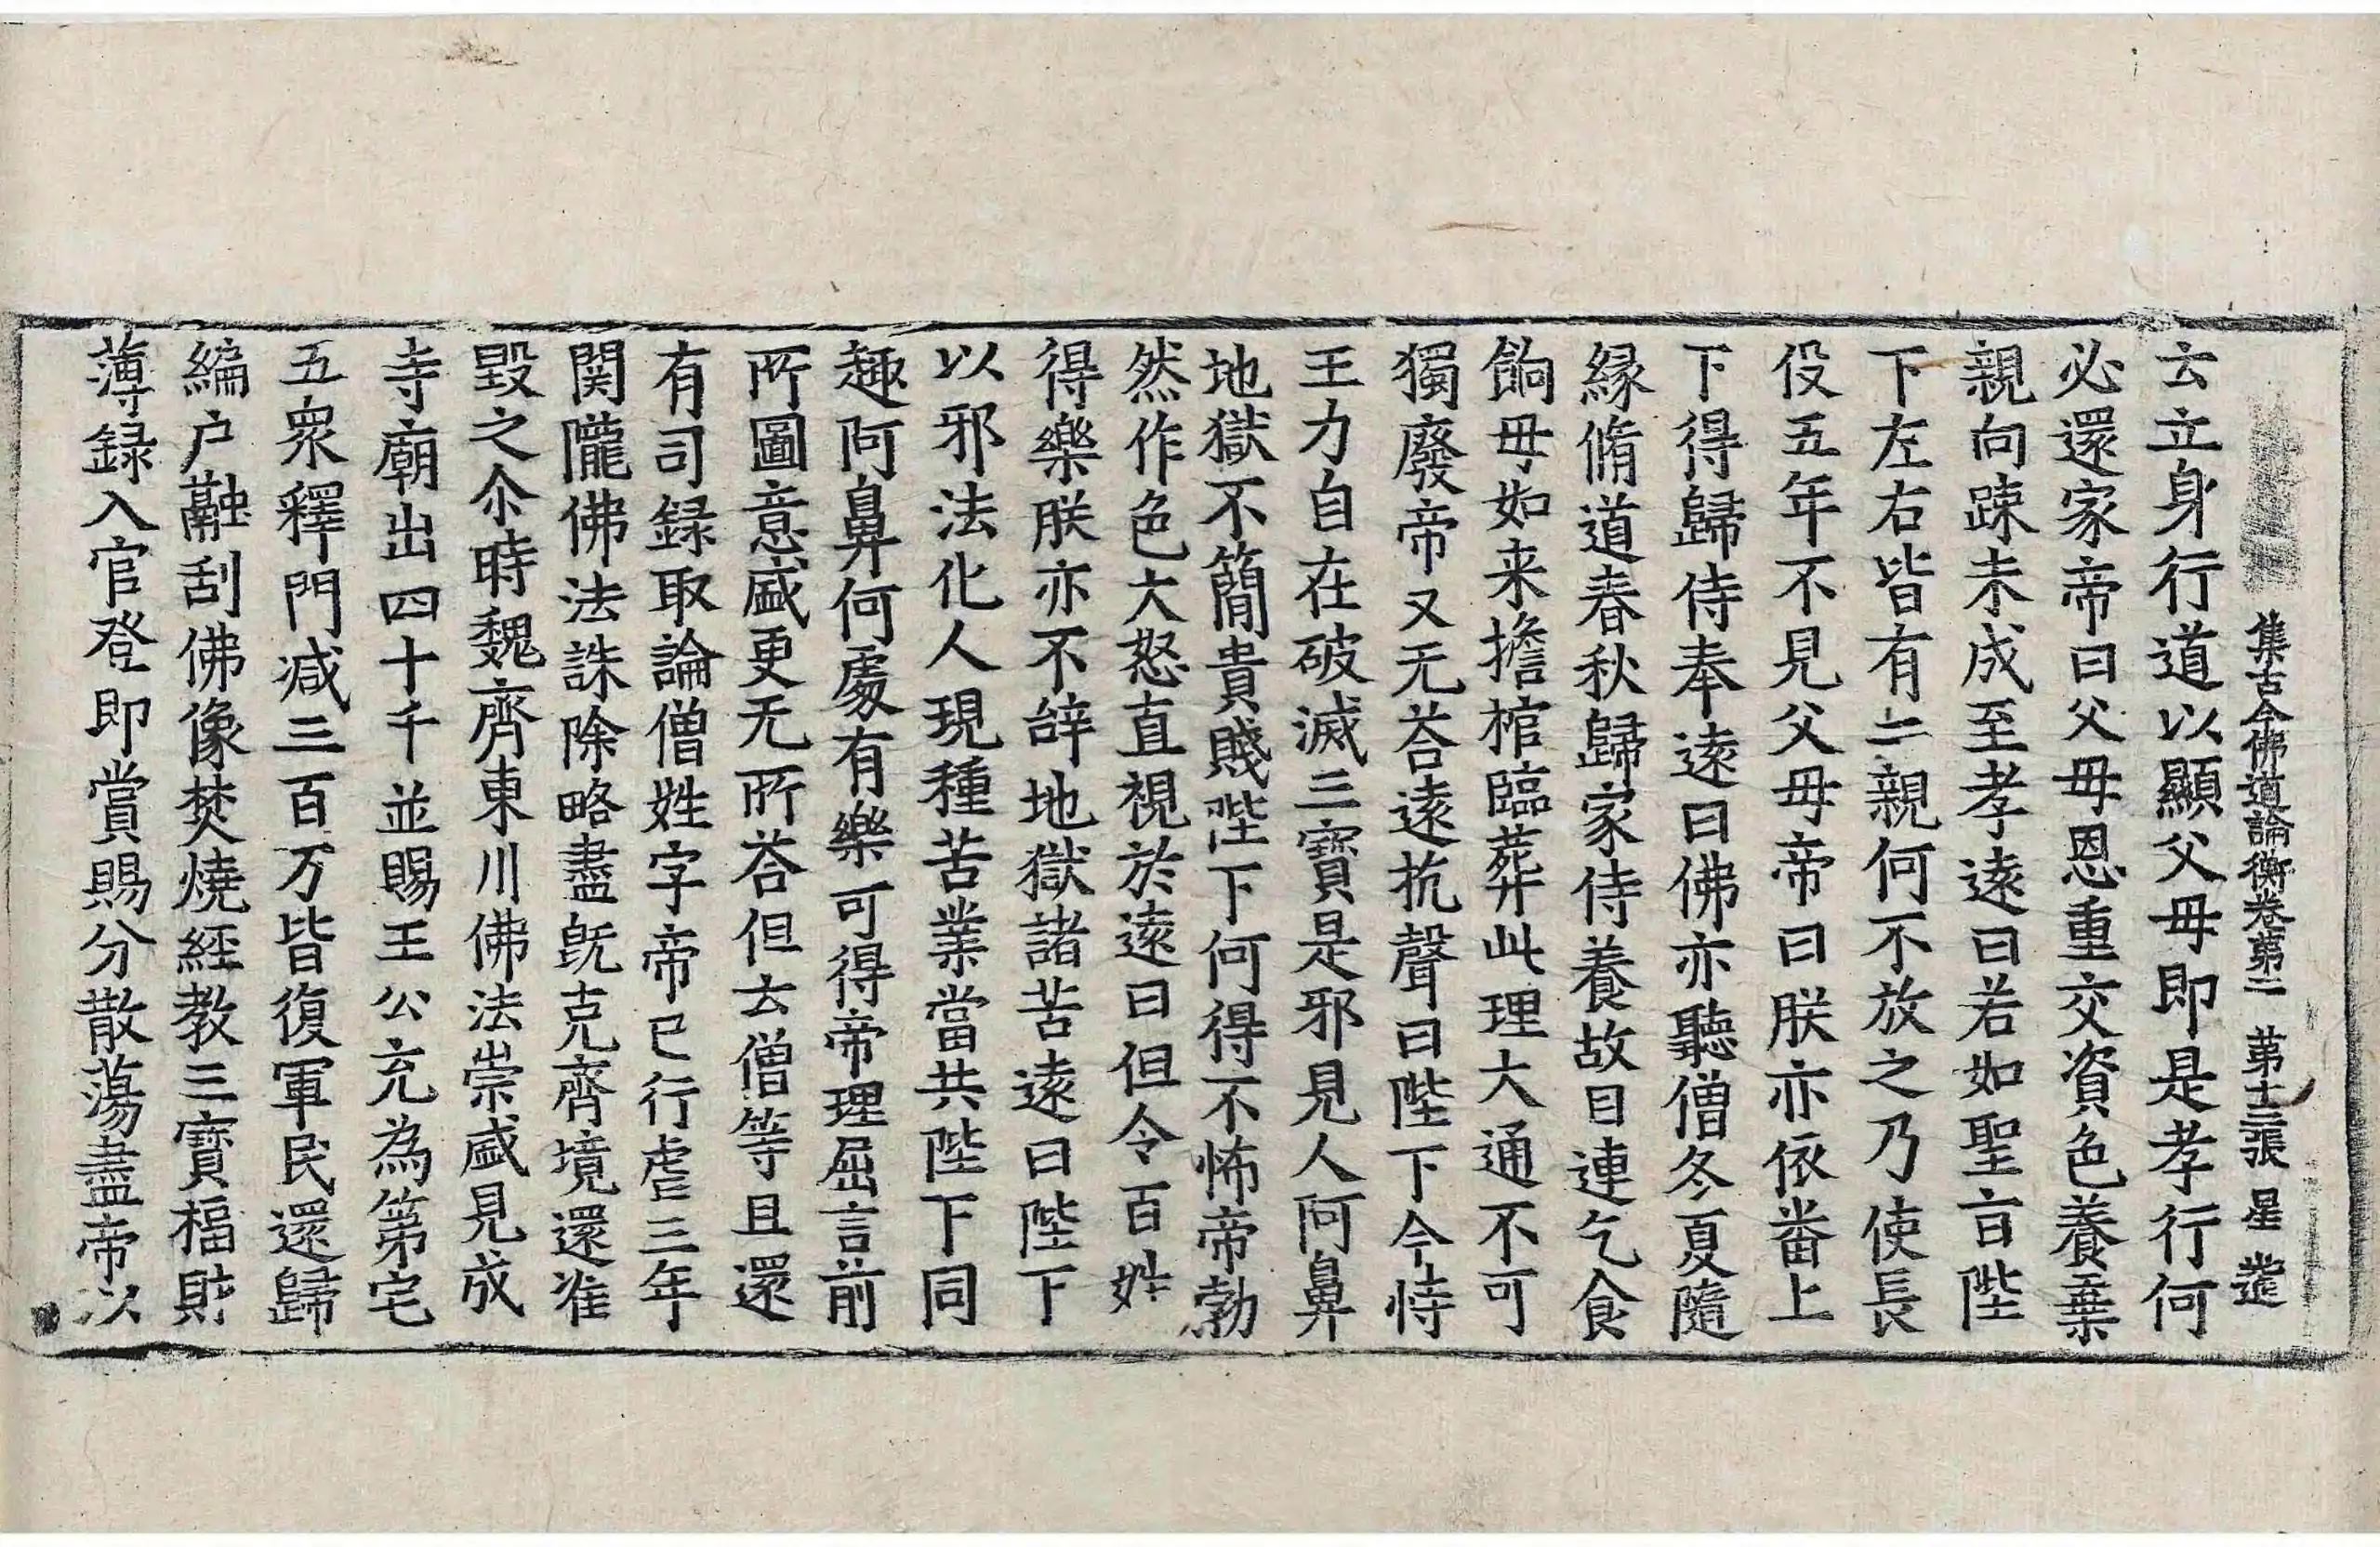 集古今佛道論衡卷第二 第十三張 星
云立身行道以顯父母即是孝行何
必還家帝曰父母恩重交資色養棄
親向踈未成至孝遠曰若如聖言陛
下左右皆有二親何不放之乃使長
役五年不見父母帝曰朕亦依番上
下得歸侍奉遠曰佛亦聽僧冬夏隨
緣脩道春秋歸家侍養故目連乞食
餉母如来擔棺臨葬此理大通不可
獨廢帝又无荅遠抗聲曰陛下今恃
王力自在破滅三寶是邪見人阿鼻
地獄不簡貴賤陛下何得不怖帝勃
然作色大怒直視於遠曰但令百姓
得樂朕亦不辝地獄諸苦遠曰陛下
以邪法化人現種苦業當共陛下同
趣阿鼻何處有樂可得帝理屈言前
所圖意盛更无所荅但云僧等且還
有司録取論僧姓字帝已行虐三年
関隴佛法誅除略盡既克齊境還准
毀之尒時魏齊東川佛法崇盛見成
寺廟出四十千並賜王公充為第宅
五眾釋門減三百万皆復軍民還歸
編户融刮佛像焚燒經教三寶福財
薄録入官登即賞賜分散蕩盡帝以